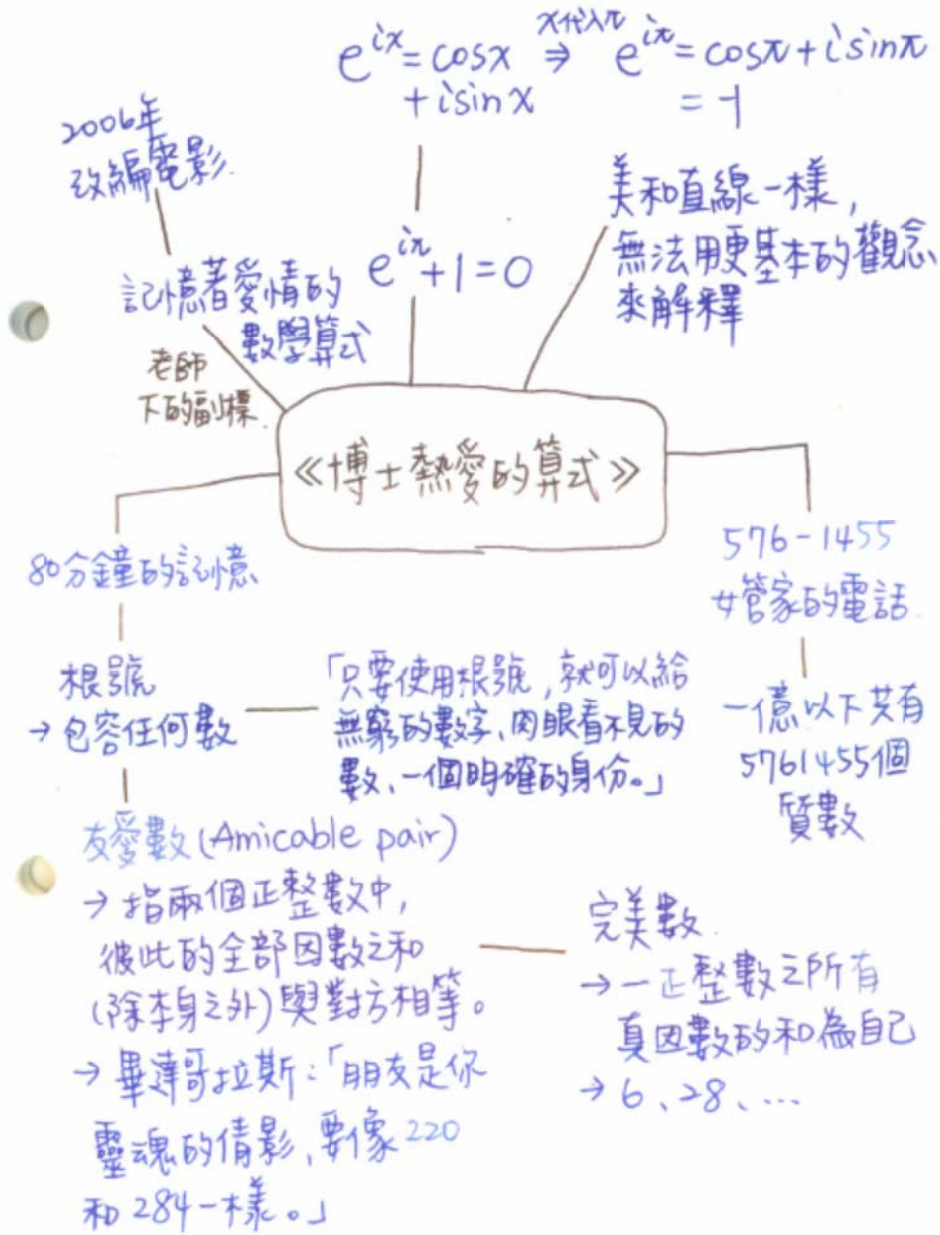 e^{ix} = cosx
+ isinx
x代入π
⇒
e^{iπ} = cosπ + isinπ
= -1
2006年
改編電影.
記憶著愛情的
數學算式
老師
下的副標.
e^{iπ} + 1 = 0
美和直線一樣,
無法用更基本的觀念
來解釋
《博士熱愛的算式》
80分鐘的記憶
根號
→ 包容任何數
「只要使用根號,就可以給
無窮的數字、肉眼看不見的
數、一個明確的身份。」
576-1455
女管家的電話.
一億以下共有
5761455個
質數
友愛數(Amicable pair)
→ 指兩個正整數中,
彼此的全部因數之和
(除本身之外)與對方相等。
→ 畢達哥拉斯:「朋友是你
靈魂的倩影,要像220
和284一樣。」
完美數.
→ 一正整數之所有
真因數的和為自己
→ 6、28、...